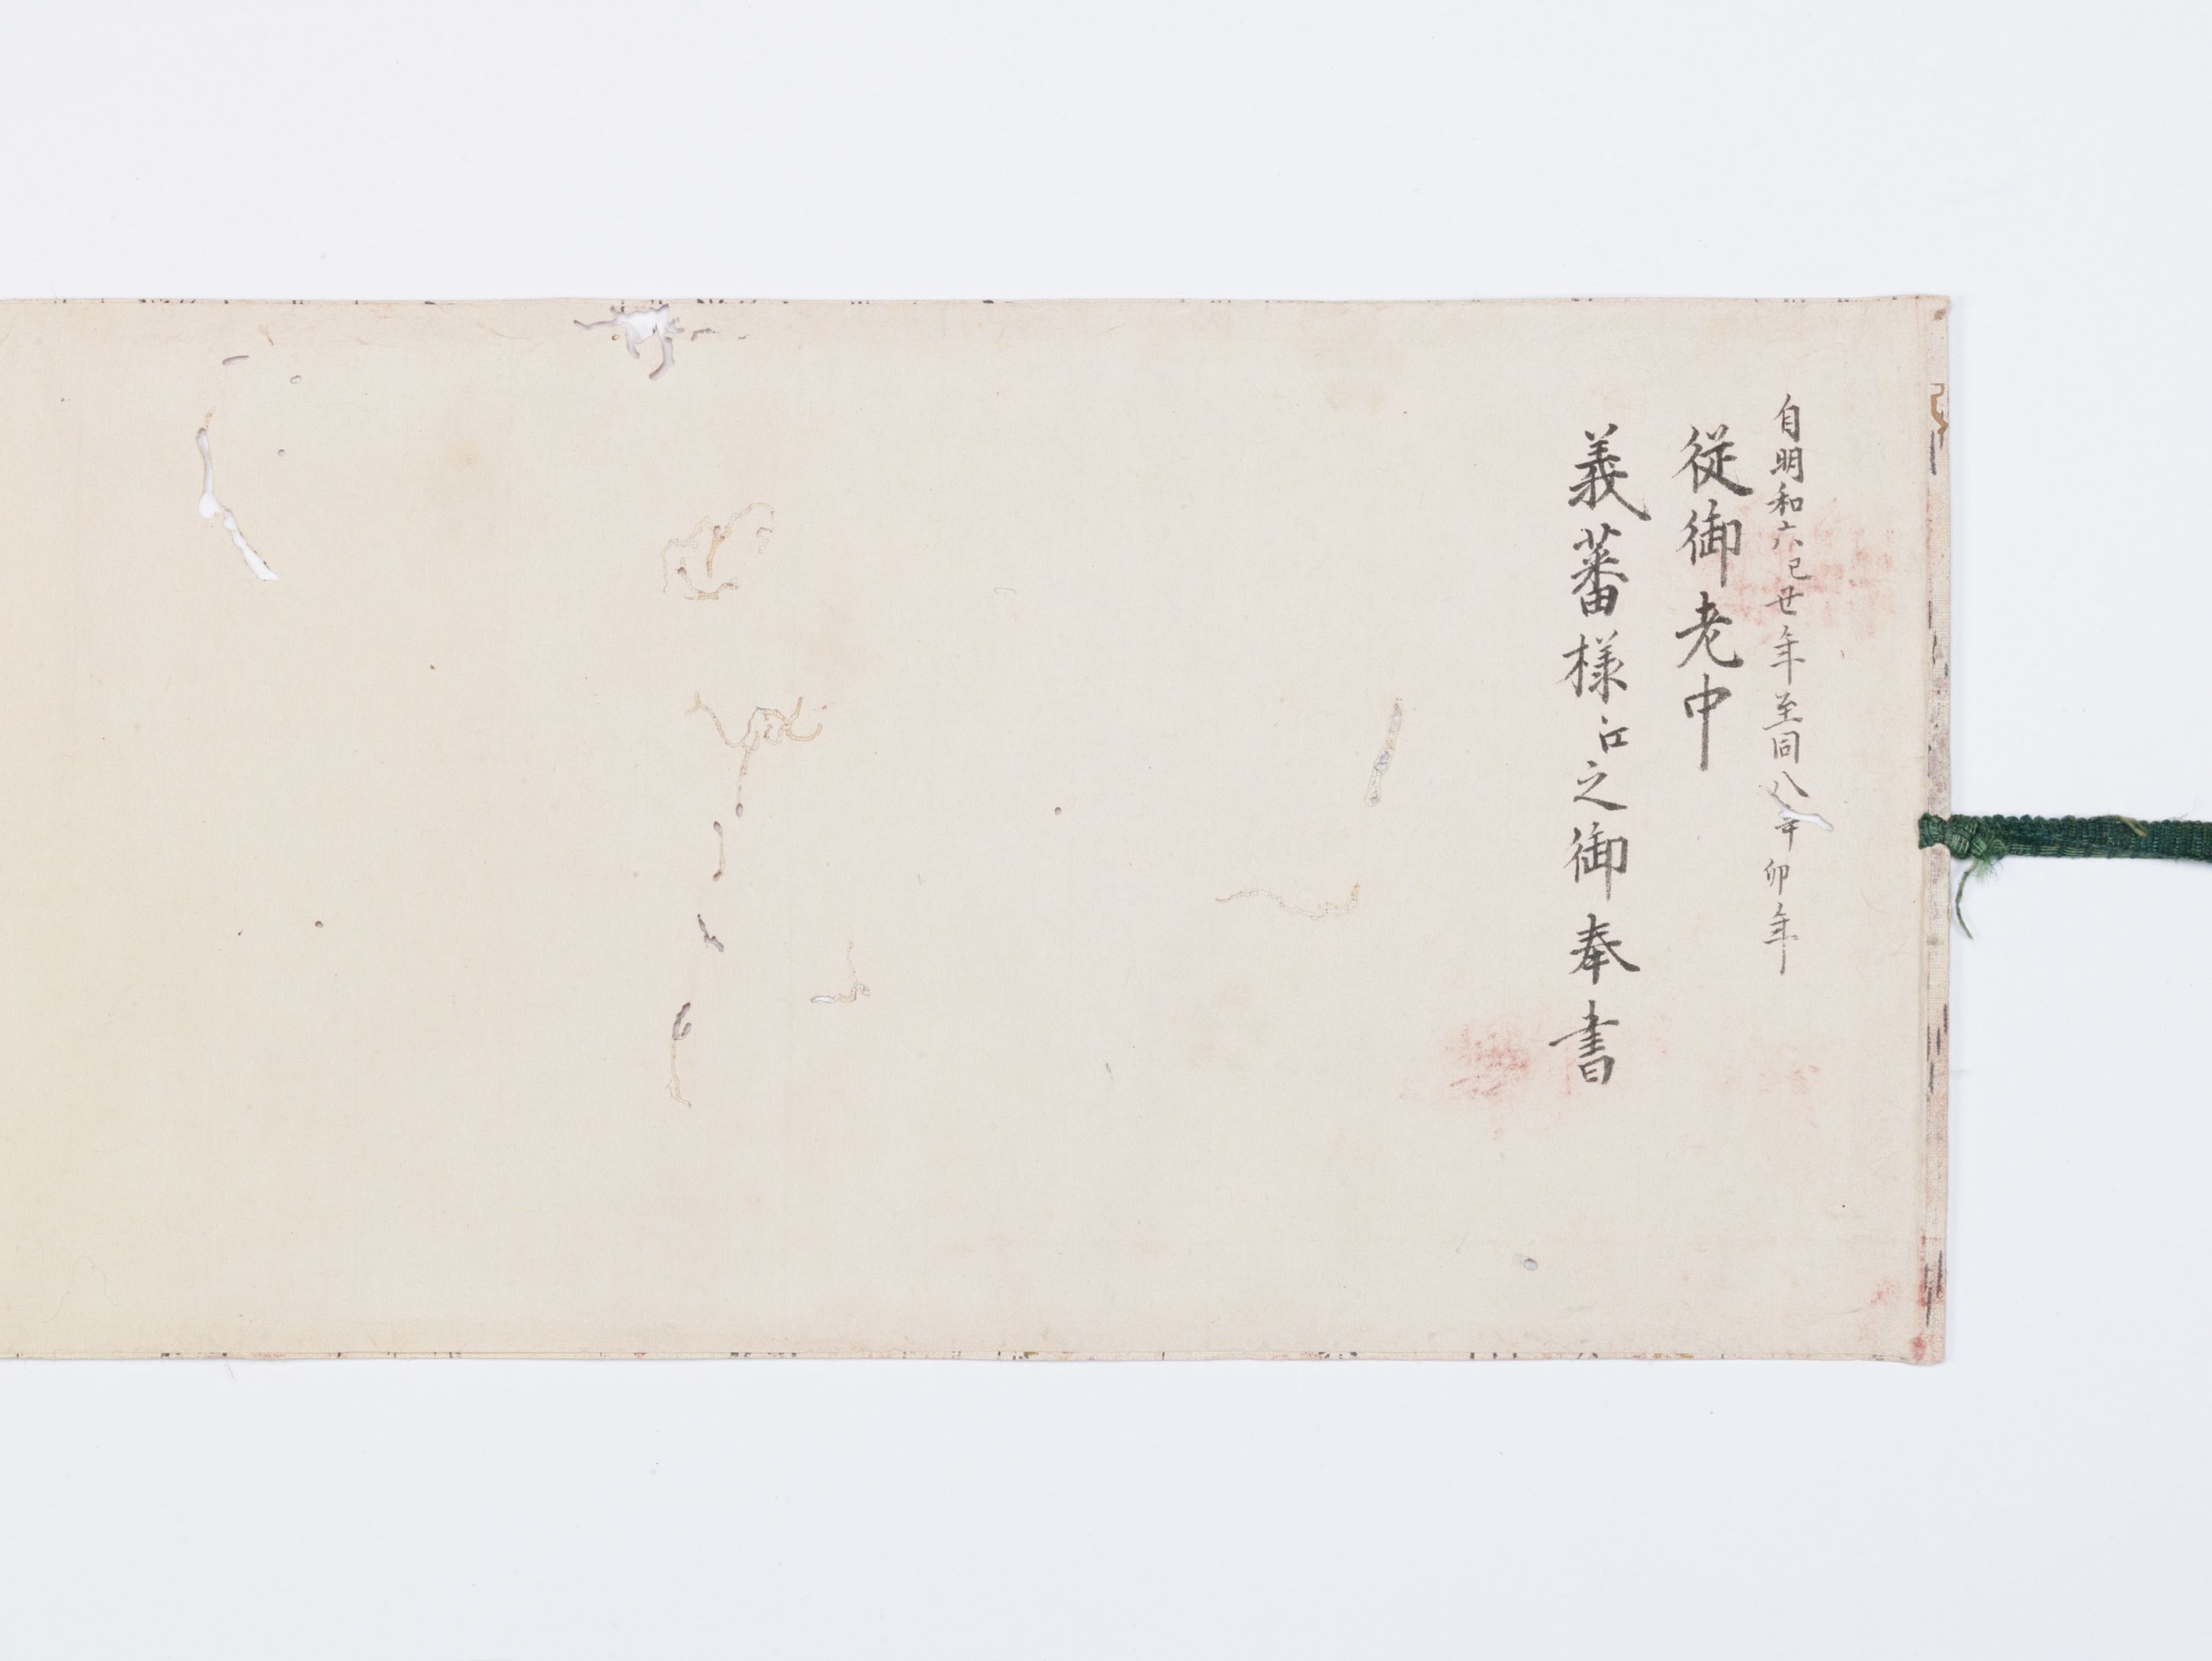 自明和六己丑年至同八辛卯年
従御老中
義蕃様江之御奉書